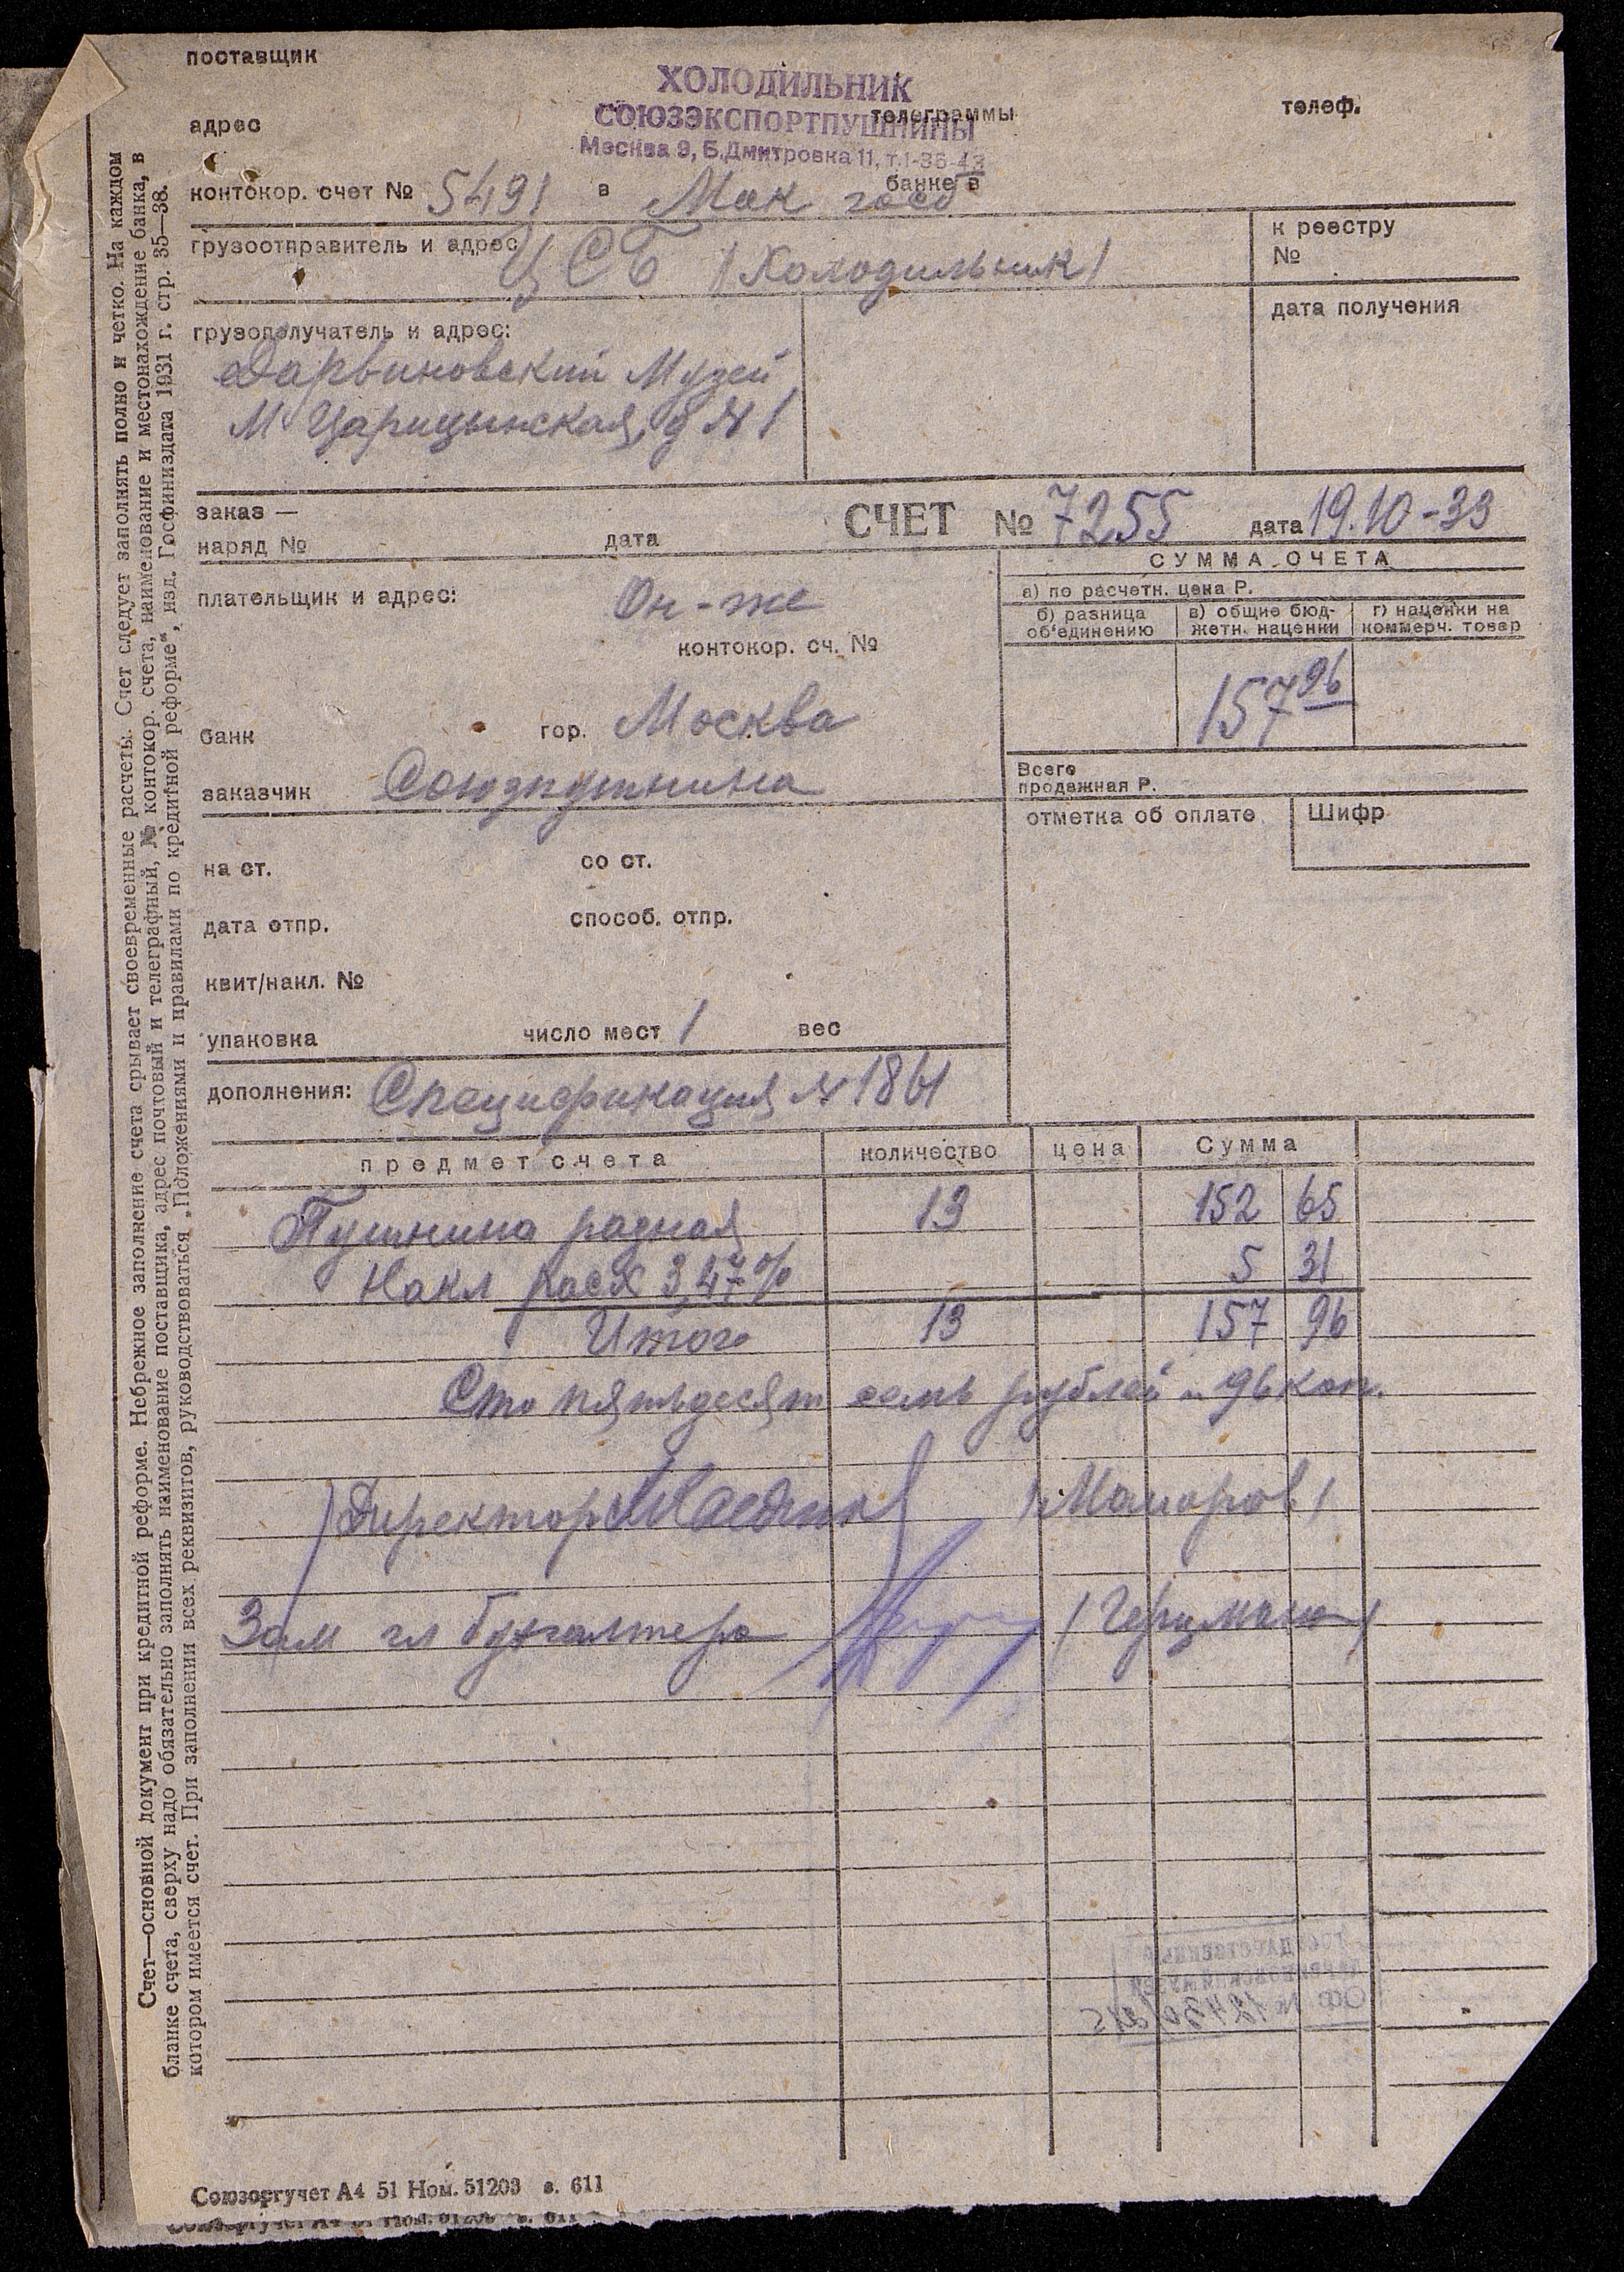 поставщик
ХОЛОДИЛЬНИК
СОЮЗЭКСПОРТПУШНИНЫ
Москва 9, Б.Дмитровка 11, т.1-35-43
адрес телеграммы телеф.
контокор. счет № 5491 в банке в
грузоотправитель и адрес ЦСБ /Холодильник/
к реестру
№
грузополучатель и адрес:
Дарвиновский Музей
М Царицынская, д № 1
дата получения
заказ —
наряд № дата
СЧЕТ № 7255 дата 19.10-33
плательщик и адрес: Он-же
контокор. сч. №
банк гор. Москва
заказчик Союзпушнина
СУММА СЧЕТА
а) по расчетн. цена Р.
б) разница об'единению
в) общие бюджетн. наценки
г) наценки на коммерч. товар
157 96
Всего
продажная Р.
отметка об оплате Шифр
на ст. со ст.
дата отпр. способ. отпр.
квит/накл. №
упаковка число мест 1 вес
дополнения: Спецификация № 1861
предмет счета количество цена Сумма
Пушнина разная 13 152 65
Накл расх 3,47% 5 31
Итого 13 157 96
Сто пятьдесят семь рублей и 96 коп.
Директор
Зам гл бухгалтера /Герцман/
Счет—основной документ при кредитной реформе. Небрежное заполнение счета срывает своевременные расчеты. Счет следует заполнять полно и четко. На каждом
бланке счета, сверху надо обязательно заполнять наименование поставщика, адрес почтовый и телеграфный, № контокор. счета, наименование и местонахождение банка, в
котором имеется счет. При заполнении всех реквизитов, руководствоваться „Положениями и правилами по кредитной реформе", изд. Госфиниздата 1931 г. стр. 35—38.
Союзоргучет А4 51 Ном. 51203 з. 611